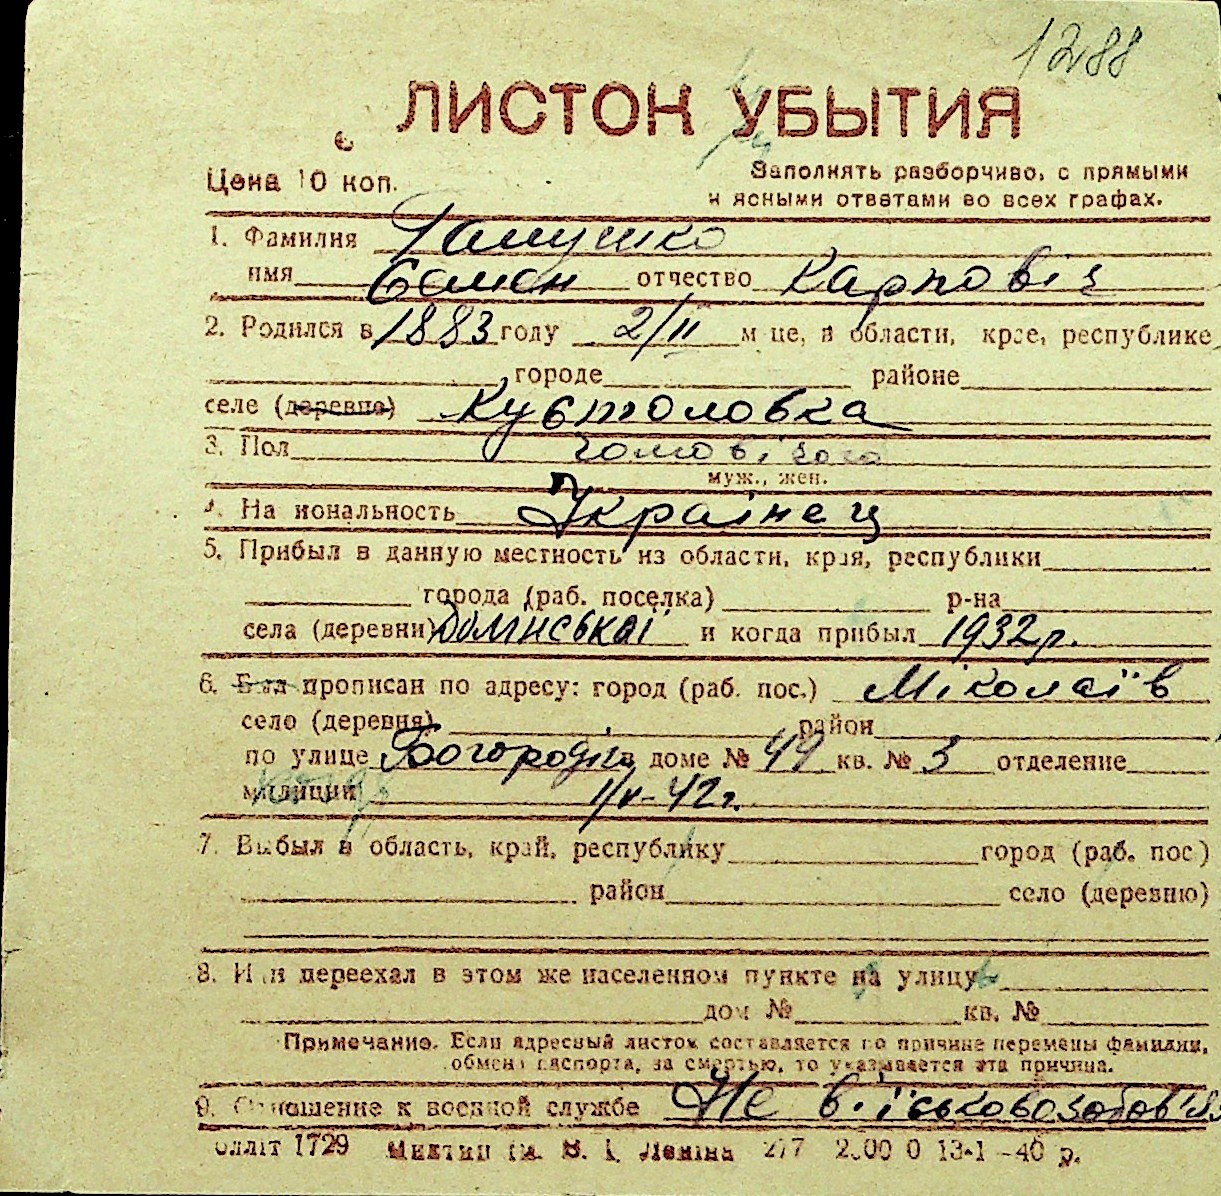 1288
ЛИСТОК УБЫТИЯ
Цена 10 коп.
Заполнять разборчиво, с прямыми
и ясными ответами во всех графах.
1. Фамилия Галушко
имя Семен отчество Карповіч
2. Родился в 1883 году 2/II м це, в области, крае, республике
городе районе
селе (деревне) Кустоловка
3. Пол чоловічого
муж., жен.
4. На иональность Украінец
5. Прибыл в данную местность из области, края, республики
города (раб. поселка) р-на
села (деревни) и когда прибыл 1932 р.
6. Был прописан по адресу: город (раб. пос.) Міколаїв
село (деревня) район
по улице доме № 49 кв. № 3 отделение
милиции 1/V-42 г.
7. Выбыл в область, край, республику город (раб. пос)
район село (деревню)
8. И и переехал в этом же населенном пункте на улицу
дом № кв. №
Примечание. Если адресный листок составляется по причине перемены фамилии,
обмена паспорта, за смертью, то указывается эта причина.
9. Отношение к военной службе Не військовозобов'яз
Облліт 1729 В. І. Леніна 2/7 13-1-40 р.